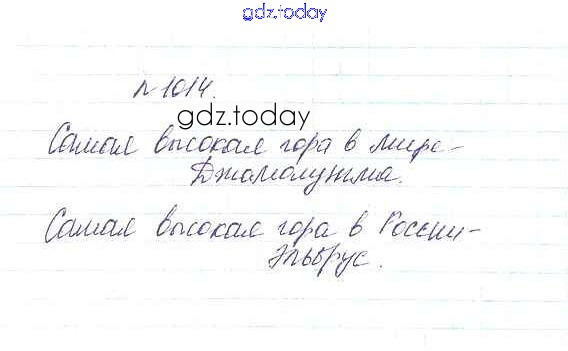 gdz.today
№1014.
gdz.today
Самая высокая гора в мире -
Джомолунгма.
Самая высокая гора в России -
Эльбрус.